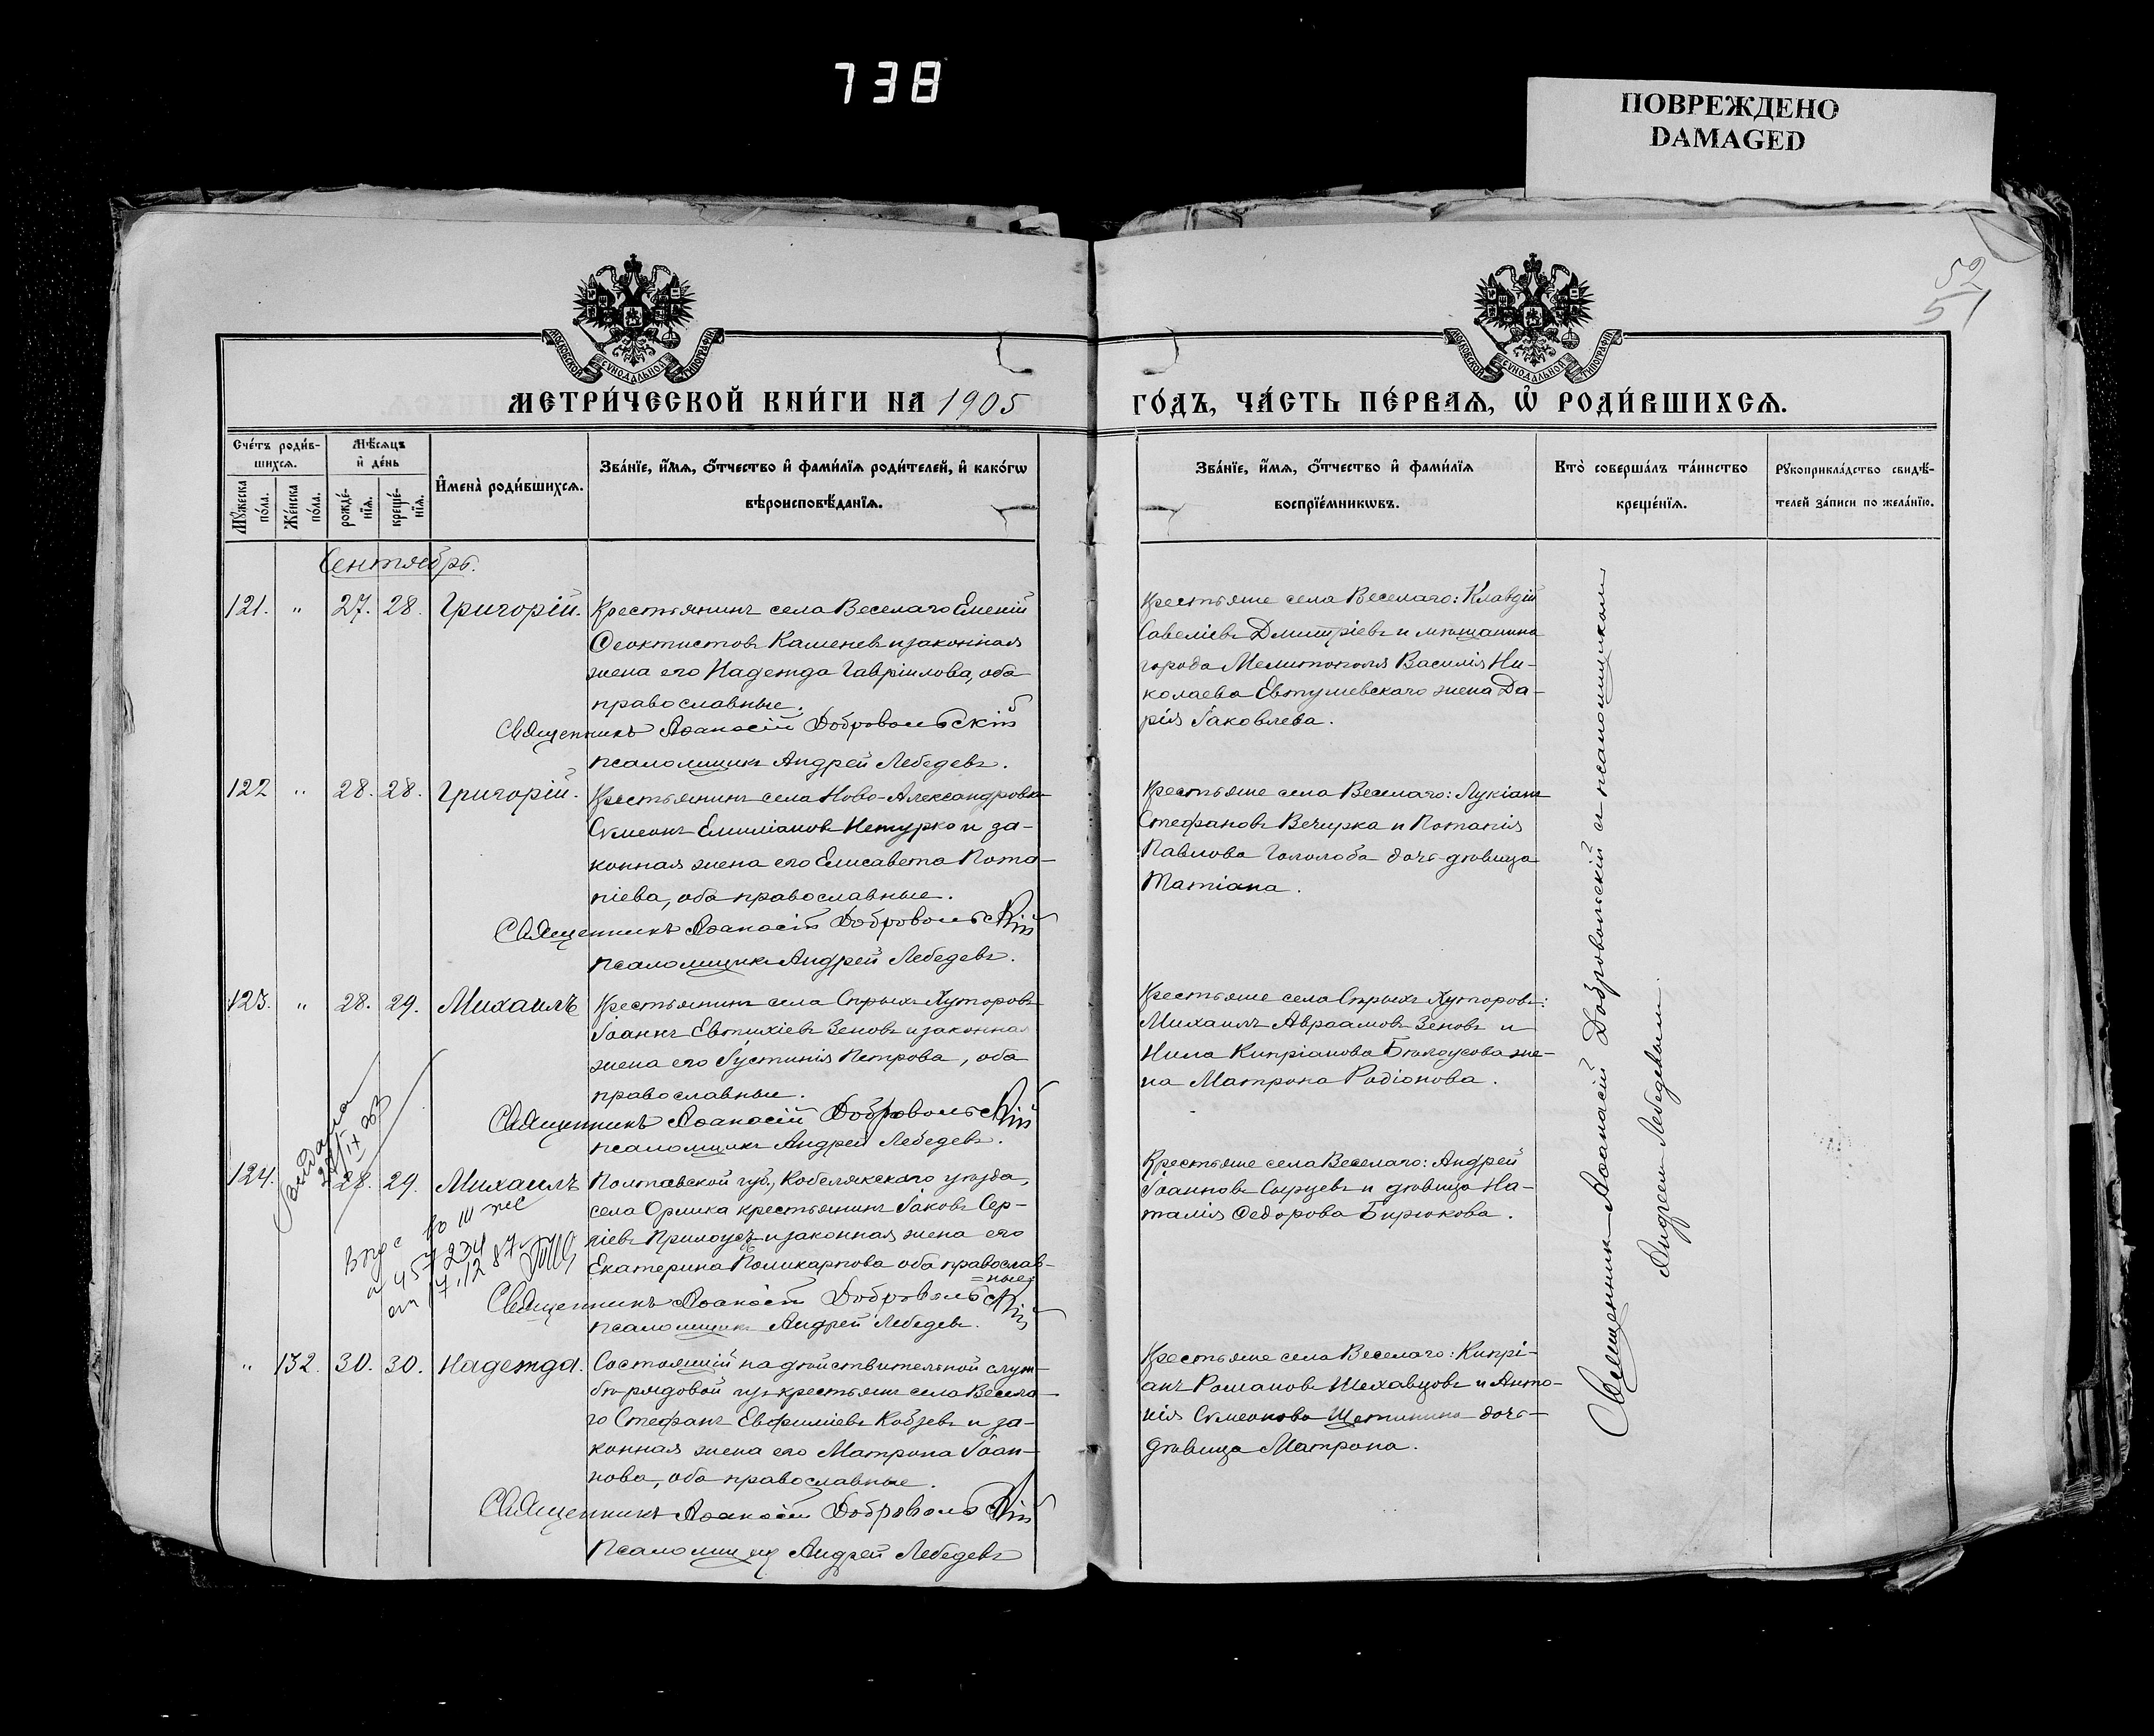 738
ПОВРЕЖДЕНО
DAMAGED
52
51
МОСКОВСКОЙ СУНОДАЛЬНОЙ ТИПОГРАФІИ
МОСКОВСКОЙ СУНОДАЛЬНОЙ ТИПОГРАФІИ
МЕТРИ́ЧЕСКОЙ КНИ́ГИ НА 1905
ГО́ДЪ, ЧА́СТЬ ПЕ́РВАѦ, Ѡ҆ РОДИ́ВШИХСѦ.
Сче́тъ роди́в-
шихсѧ.
Мѣ́сѧцъ
и҆ де́нь
Мꙋ́жеска
по́ла.
Же́нска
по́ла.
рожде́-
нїѧ.
креще́-
нїѧ.
И҆мена̀ роди́вшихсѧ.
Зва́нїе, и҆́мѧ, ѻ҆́тчество и҆ фами́лїѧ роди́телей, и҆ како́гѡ
вѣроисповѣ́данїѧ.
Зва́нїе, и҆́мѧ, ѻ҆́тчество и҆ фами́лїѧ
воспрїе́мникѡвъ.
Кто̀ соверша́лъ та́инство
креще́нїѧ.
Рꙋкоприкла́дство свидѣ́-
телей за́писи по жела́нїю.
Сентябрь.
121. " 27. 28. Григорій. Крестьянинъ села Веселаго Евгеній
Ѳеоктистовъ Каменевъ и законная
жена его Надежда Гавріилова, оба
православные.
Священникъ Аѳанасій Добровольскій
псаломщикъ Андрей Лебедевъ.
Крестьяне села Веселаго: Клавдій
Савеліевъ Дмитріевъ и мѣщанина
города Мелитополя Василія Ни-
колаева Евтушевскаго жена Да-
рія Іаковлева.
122 " 28. 28. Григорій. Крестьянинъ села Ново-Александровки
Сѵмеонъ Емиліановъ Нетурко и за-
конная жена его Елисавета Пота-
піева, оба православные.
Священникъ Аѳанасій Добровольскій
псаломщикъ Андрей Лебедевъ.
Крестьяне села Веселаго: Лукіанъ
Стефановъ Вечирка и Потапія
Павлова Гололоба дочь-дѣвица
Татіана.
123. " 28. 29. Михаилъ Крестьянинъ села Спрыхъ Хуторовъ
Іоаннъ Евтихіевъ Зеновъ и законная
жена его Іустинія Петрова, оба
православные.
Священникъ Аѳанасій Добровольскій
псаломщикъ Андрей Лебедевъ.
Крестьяне села Спрыхъ Хуторовъ:
Михаилъ Авраамовъ Зеновъ и
Нила Кипріанова Бѣлоусова же-
на Матрона Родіонова.
124. 28. 29. Михаилъ Полтавской губ., Кобелякскаго уѣзда,
села Орлика крестьянинъ Іаковъ Сер-
гіевъ Прилоусъ и законная жена его
Екатерина Поликарпова оба православ-
=ные.
Священникъ Аѳанасій Добровольскій
псаломщикъ Андрей Лебедевъ.
Крестьяне села Веселаго: Андрей
Іоанновъ Сырцевъ и дѣвица На-
талія Ѳедорова Бирюкова.
Выдана
" 132. 30. 30. Надежда. Состоящій на дѣйствительной служ-
бѣ рядовой изъ крестьянъ села Весела-
го Стефанъ Евфиміевъ Кобзевъ и за-
конная жена его Матрона Іоан-
нова, оба православные.
Священникъ Аѳанасій Добровольскій
Псаломщикъ Андрей Лебедевъ
Крестьяне села Веселаго: Кипрі-
анъ Романовъ Шехавцовъ и Анто-
нія Сѵмеонова Щетинина дочь-
дѣвица Матрона.
Священникъ Аѳанасій Добровольскій и псаломщикъ
Андреем Лебедевым.